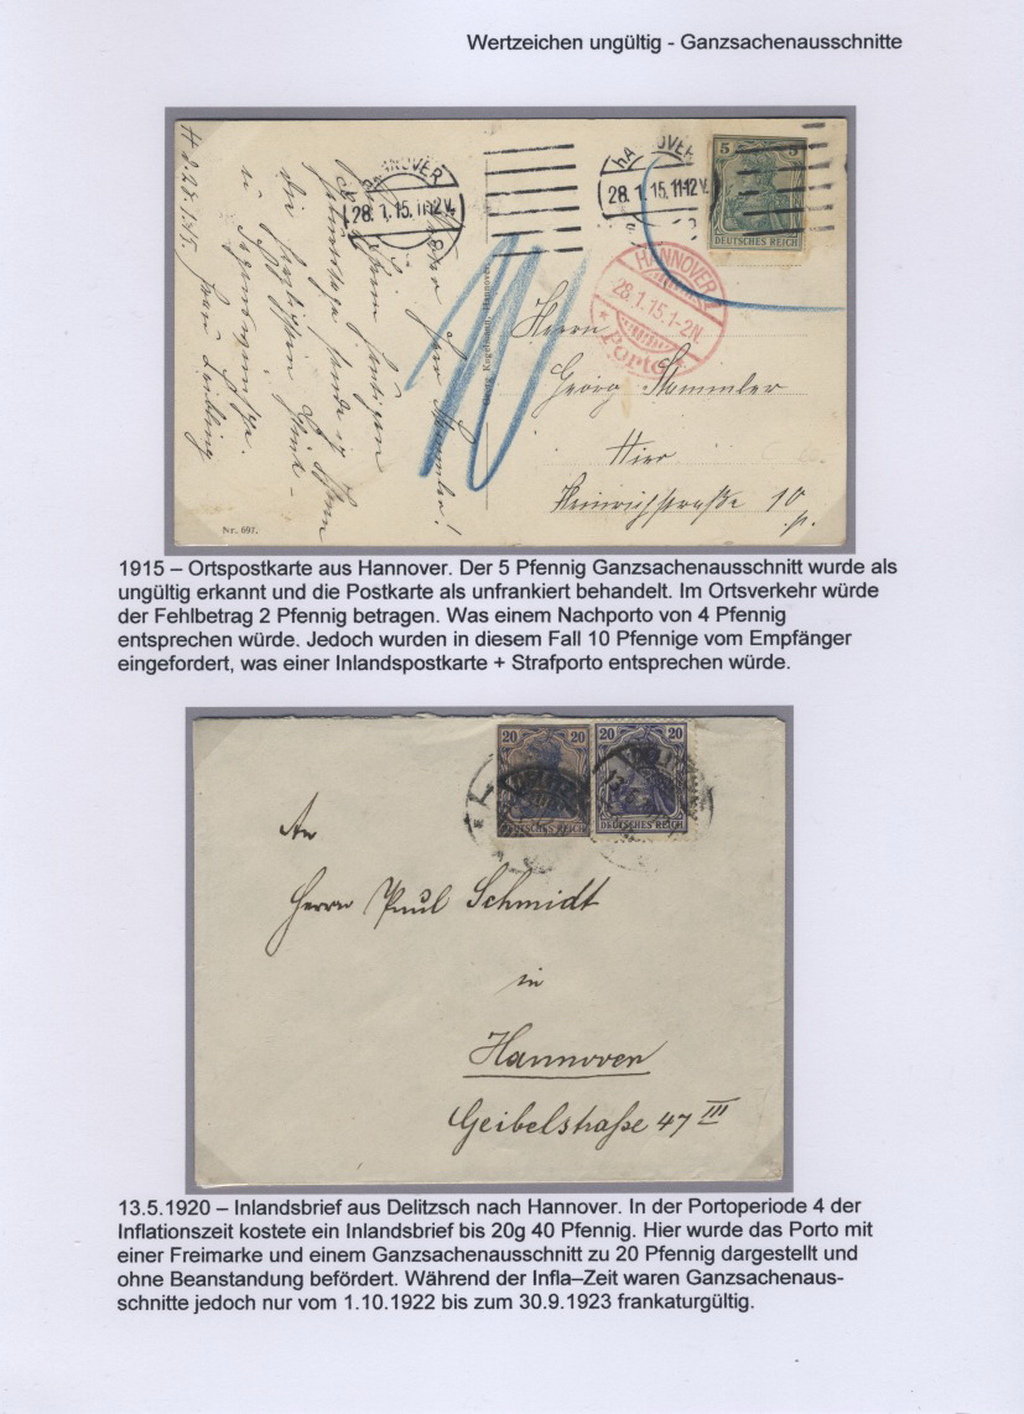 Wertzeichen ungültig - Ganzsachenausschnitte
HANNOVER
28.1.15.11-12V.
HANNOVER
28.1.15.11-12V.
5 5
DEUTSCHES REICH
HANNOVER
28.1.15.1-2N.
Porto
10
Herrn
Georg Stammler
Hier
Heinrichstraße 10
p.
H. d. 28.1.15.
Georg Kugelmann, Hannover.
Nr. 697.
1915 – Ortspostkarte aus Hannover. Der 5 Pfennig Ganzsachenausschnitt wurde als
ungültig erkannt und die Postkarte als unfrankiert behandelt. Im Ortsverkehr würde
der Fehlbetrag 2 Pfennig betragen. Was einem Nachporto von 4 Pfennig
entsprechen würde. Jedoch wurden in diesem Fall 10 Pfennige vom Empfänger
eingefordert, was einer Inlandspostkarte + Strafporto entsprechen würde.
20 20
DEUTSCHES REICH
20 20
DEUTSCHES REICH
An
Herrn Paul Schmidt
in
Hannover
Geibelstraße 47 III
13.5.1920 – Inlandsbrief aus Delitzsch nach Hannover. In der Portoperiode 4 der
Inflationszeit kostete ein Inlandsbrief bis 20g 40 Pfennig. Hier wurde das Porto mit
einer Freimarke und einem Ganzsachenausschnitt zu 20 Pfennig dargestellt und
ohne Beanstandung befördert. Während der Infla–Zeit waren Ganzsachenaus-
schnitte jedoch nur vom 1.10.1922 bis zum 30.9.1923 frankaturgültig.